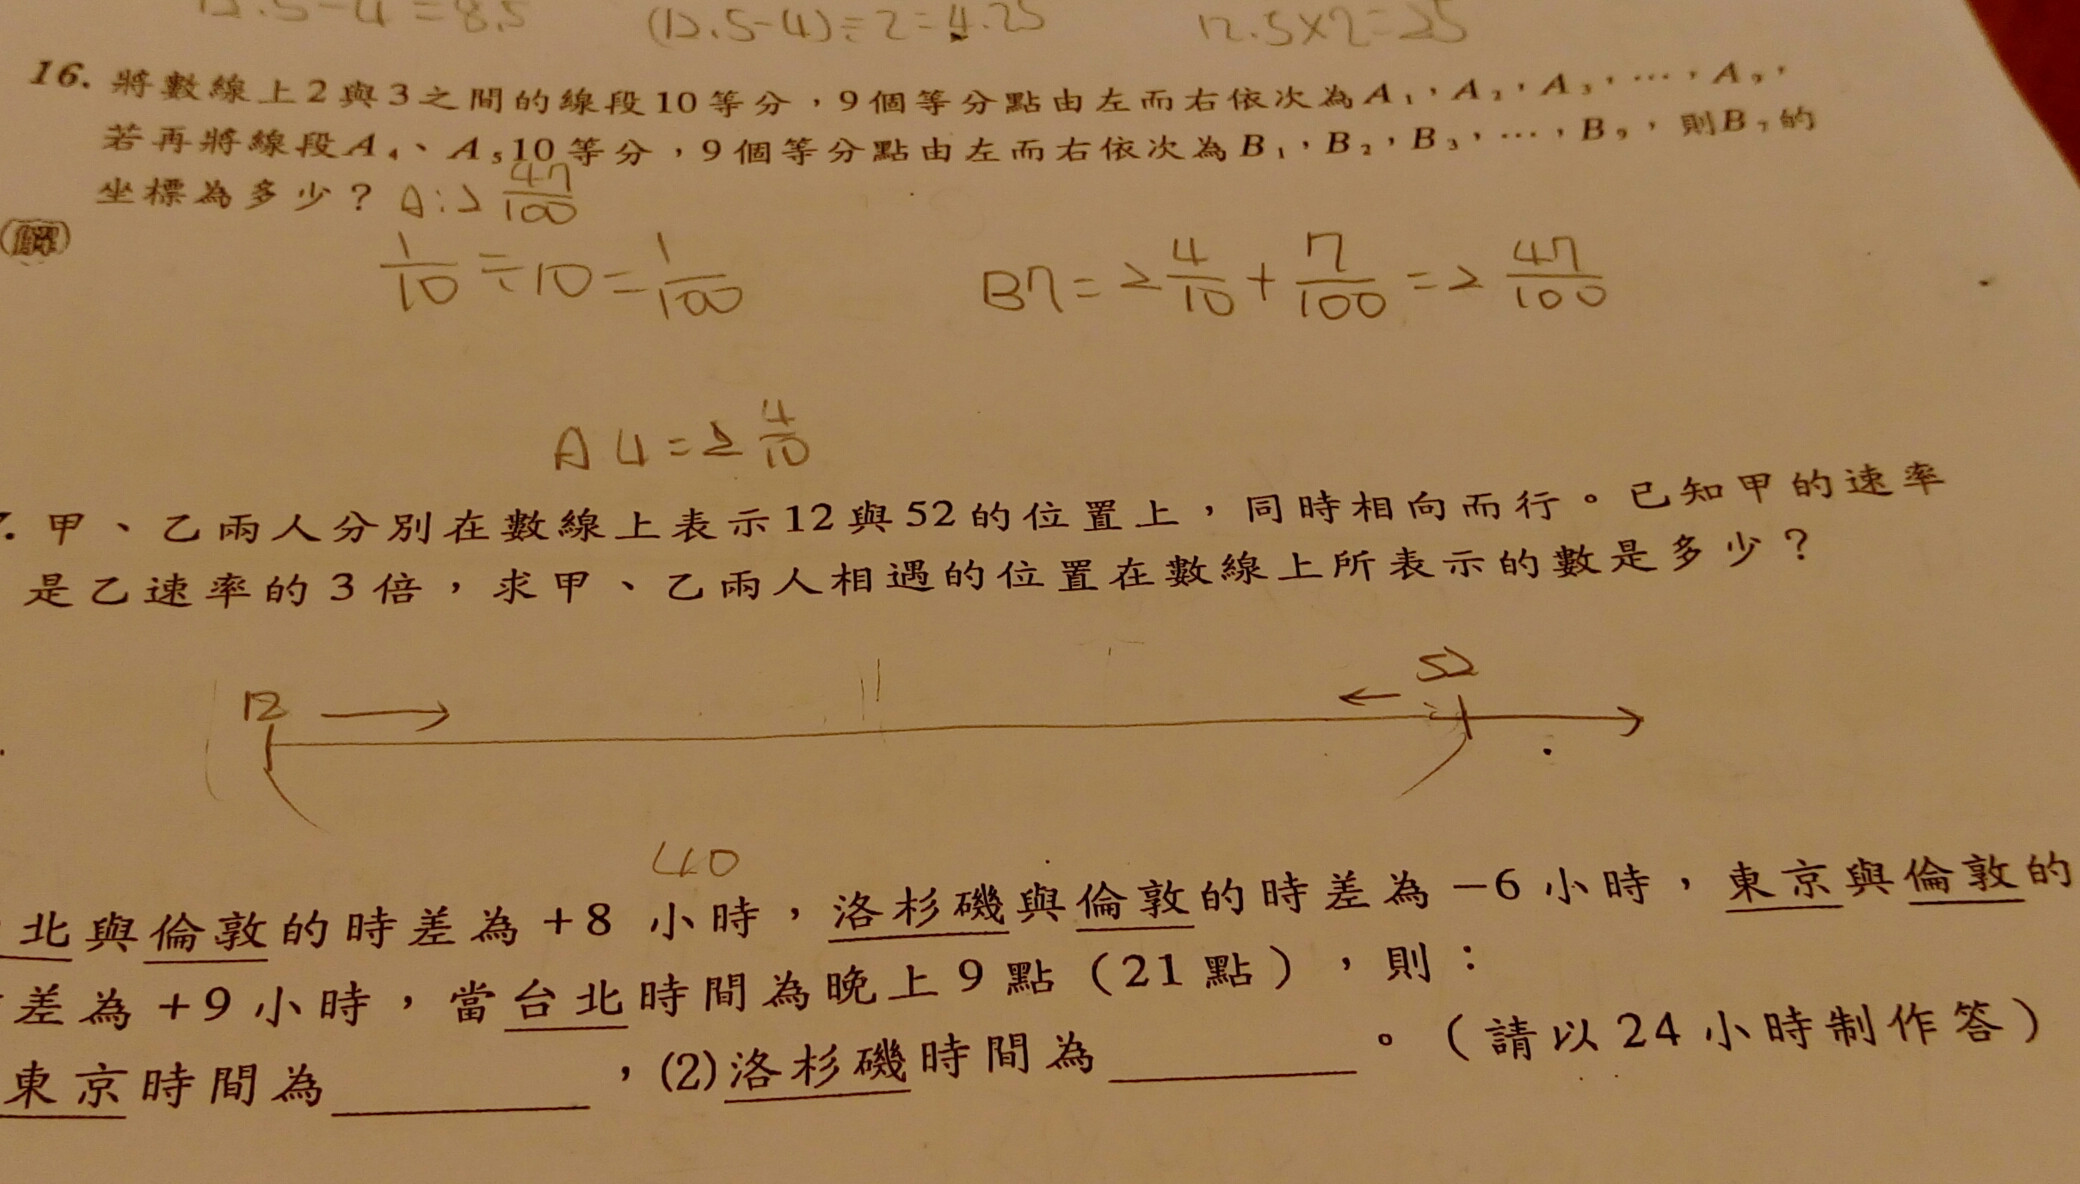 12.5-4=8.5 (12.5-4)÷2=4.25 12.5×2=25
16. 將數線上2與3之間的線段10等分，9個等分點由左而右依次為A₁，A₂，A₃，…，A₉，
若再將線段A₄、A₅10等分，9個等分點由左而右依次為B₁，B₂，B₃，…，B₉，則B₇的
坐標為多少？ A:2 47/100
解
1/10÷10=1/100 B7=2 4/10+7/100=2 47/100
A4=2 4/10
7. 甲、乙兩人分別在數線上表示12與52的位置上，同時相向而行。已知甲的速率
是乙速率的3倍，求甲、乙兩人相遇的位置在數線上所表示的數是多少？
12 52
40
北與倫敦的時差為+8小時，洛杉磯與倫敦的時差為－6小時，東京與倫敦的
差為+9小時，當台北時間為晚上9點（21點），則：
東京時間為＿＿＿＿，(2)洛杉磯時間為＿＿＿＿。（請以24小時制作答）